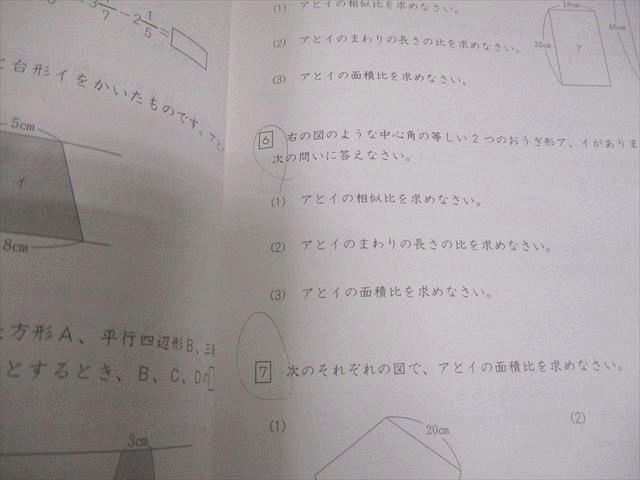 3/7 - 2 1/5 =
と台形イをかいたものです。
5cm
イ
8cm
方形A、平行四辺形B、三
とするとき、B、C、Dの
3cm
(1) アとイの相似比を求めなさい。
(2) アとイのまわりの長さの比を求めなさい。
(3) アとイの面積比を求めなさい。
18cm
32cm
ア
48cm
6 右の図のような中心角の等しい2つのおうぎ形ア、イがありま
次の問いに答えなさい。
(1) アとイの相似比を求めなさい。
(2) アとイのまわりの長さの比を求めなさい。
(3) アとイの面積比を求めなさい。
7 次のそれぞれの図で、アとイの面積比を求めなさい。
(1)
20cm
(2)